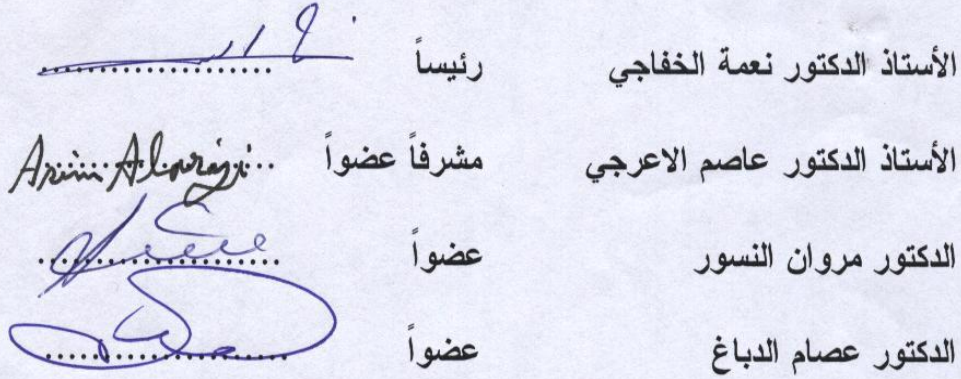 الأستاذ الدكتور نعمة الخفاجي رئيساً ....................
الأستاذ الدكتور عاصم الاعرجي مشرفاً عضواً ....................
الدكتور مروان النسور عضواً ....................
الدكتور عصام الدباغ عضواً ....................